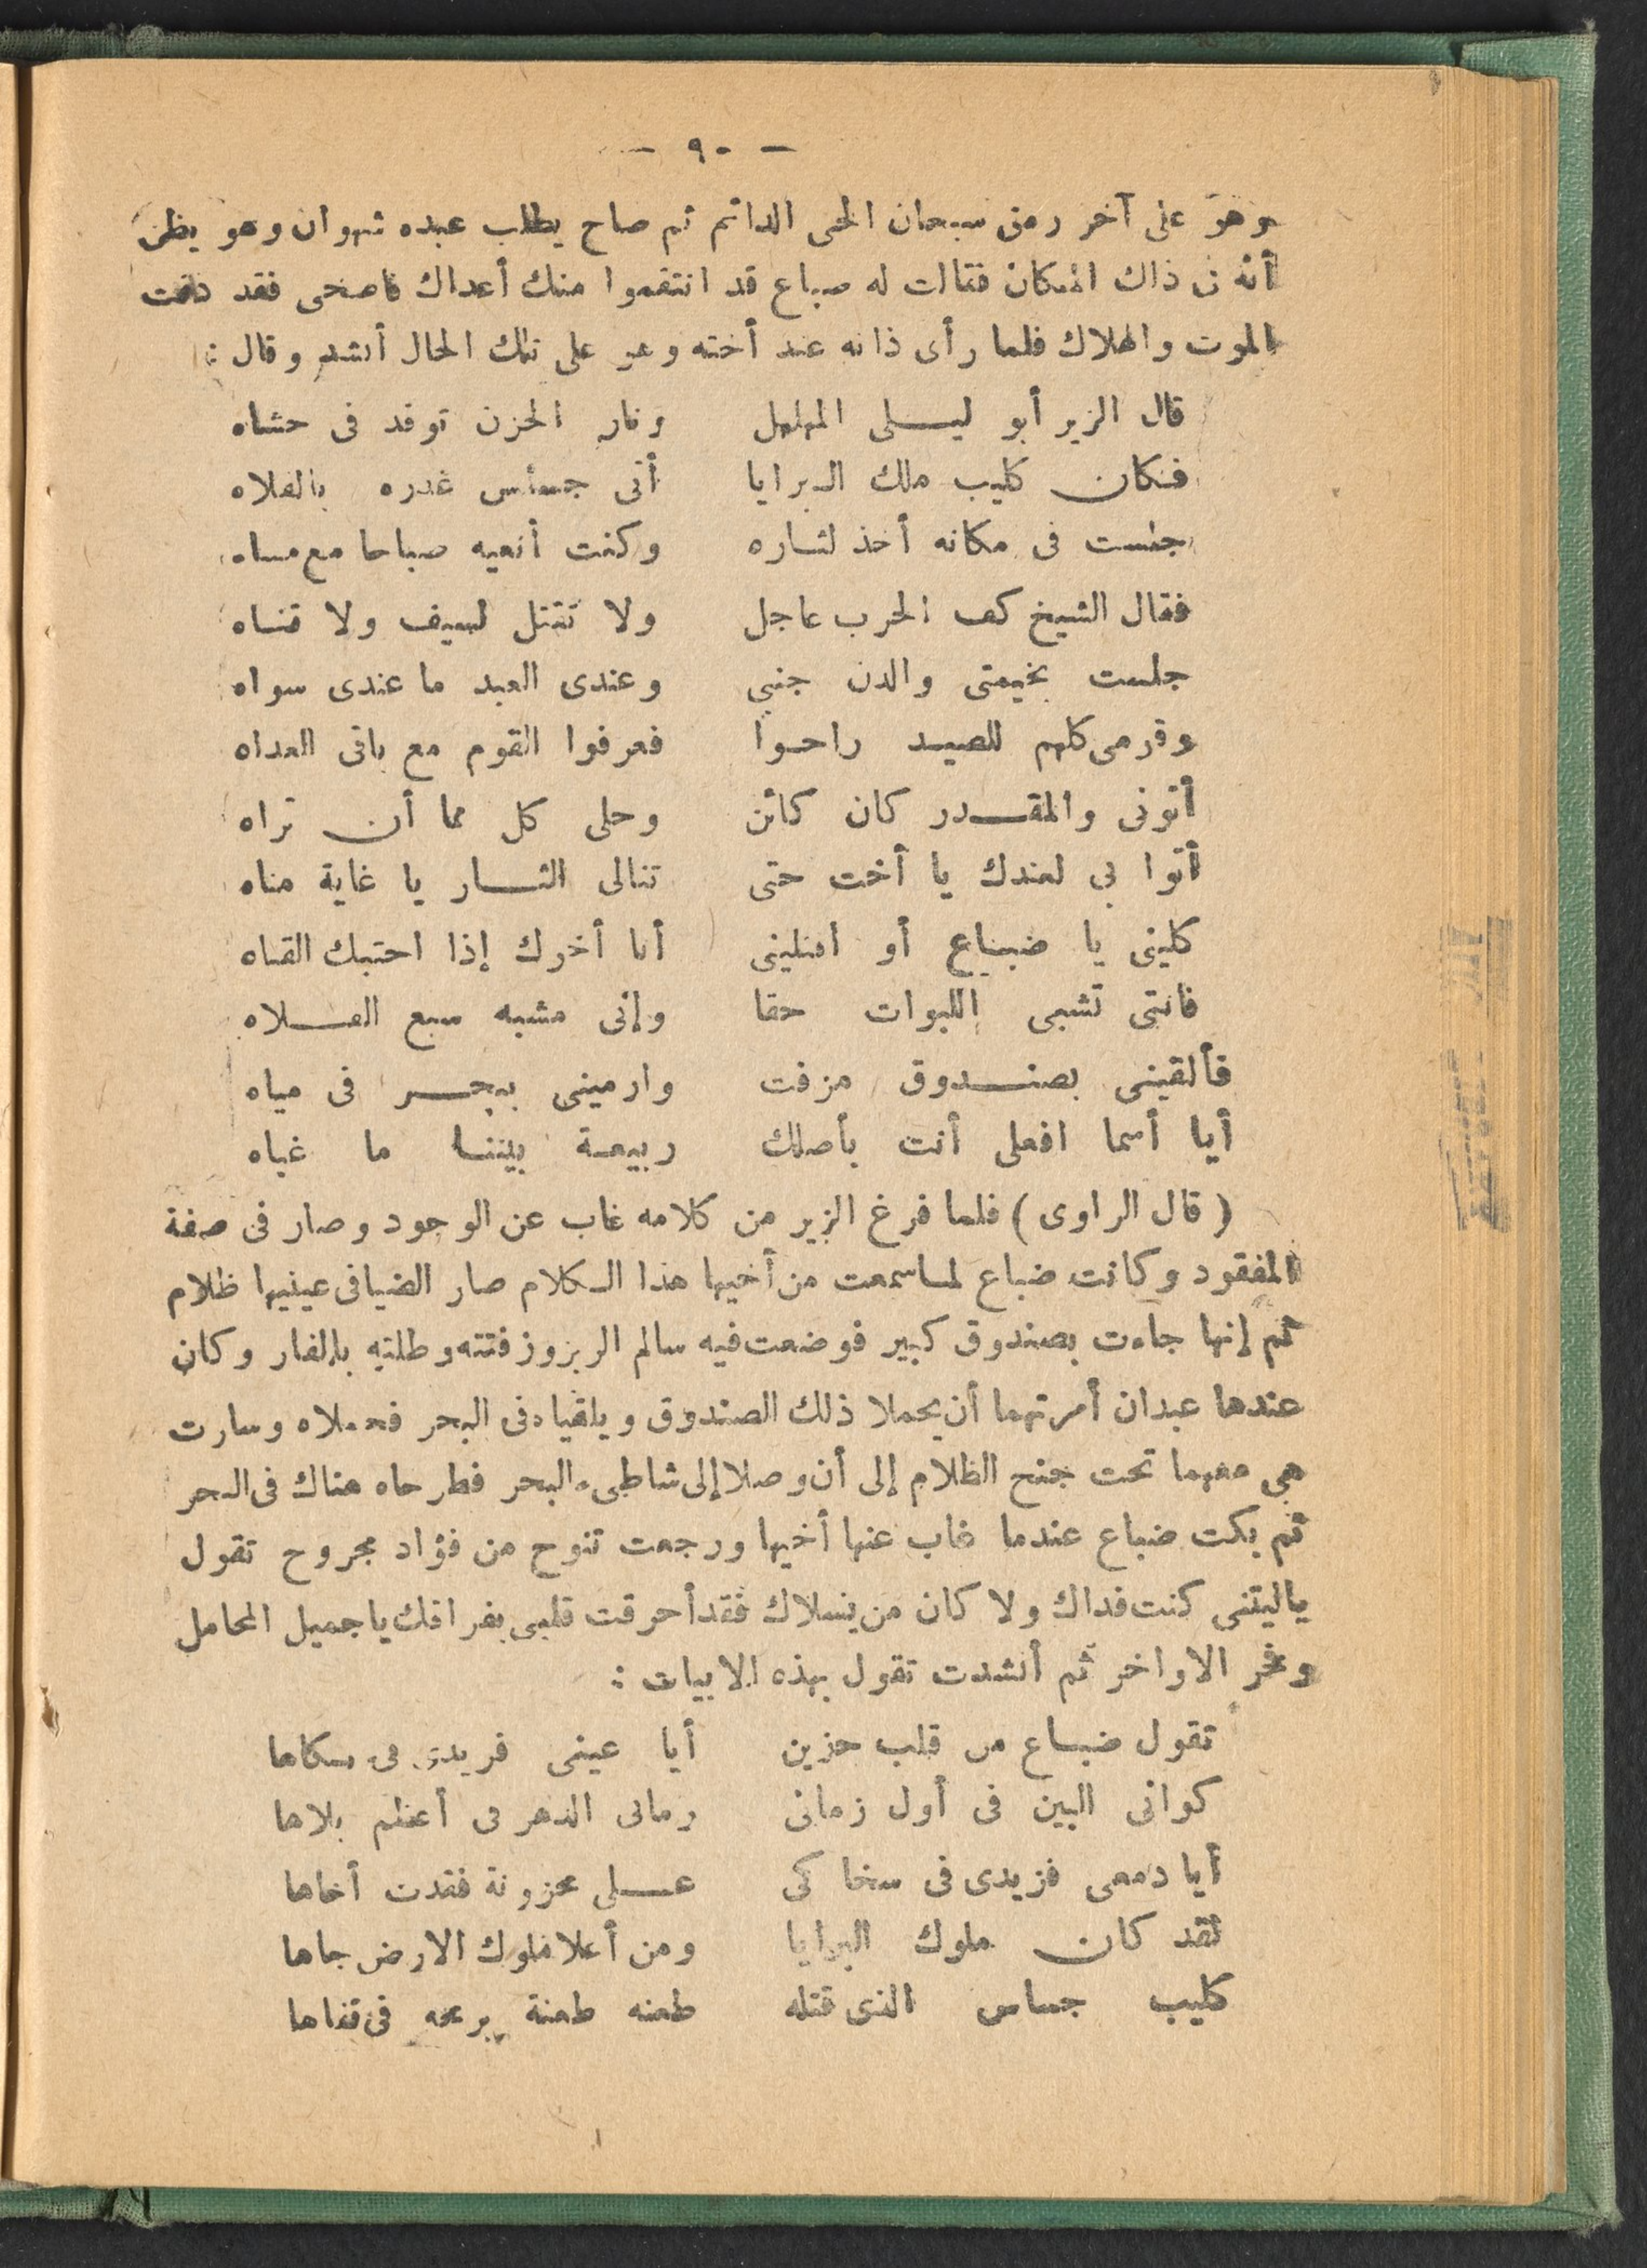 — ٩٠ —
وهو على آخر رمق سبحان الحى الدائم ثم صاح يطلب عبده شهوان وهو يظن
أنه فى ذاك المكان فقالت له ضباع قد انتقموا منك أعداك فاصحى فقد ذقت
الموت والهلاك فلما رأى ذاته عند أخته وهو على تلك الحال أنشد وقال :
قال الزير أبو ليـــلى المهلهل ونار الحزن توقد فى حشاه
فـكان كليب ملك الـبرايا أتى جساس غدره بالفلاه
جلست فى مكانه أخذ لثـاره وكنت أنعيه صباحا مع مساه
فقال الشيخ كف الحرب عاجل ولا تقتل لسيف ولا قنـاه
جلست بخيمتى والدن جنبى وعندى العبد ما عندى سواه
وقومى كلهم للصيـد راحـوا فعرفوا القوم مع باقى العداه
أتونى والمقـــدر كان كائن وحلى كل مما أن تراه
أتوا بى لعندك يا أخت حتى تنالى الثـــار يا غاية مناه
كلينى يا ضبـاع أو اقتلينى أنا أخوك إذا احتبك القناه
فانتى تشبهى اللبوات حقا وإنى مشبه سبع الفـــلاه
فألقينى بصنـــدوق مزفت وارمينى ببحـــر فى مياه
أيا أسما افعلى أنت بأصلك ربيعـة بيننـا ما غباه
( قال الراوى ) فلما فرغ الزير من كلامه غاب عن الوجود وصار فى صفة
المفقود وكانت ضباع لمـا سمعت من أخيها هذا الـكلام صار الضيا فى عينيها ظلام
ثم إنها جاءت بصندوق كبير فوضعت فيه سالم الزير وزفتته وطلته بالقار وكان
عندها عبدان أمرتهما أن يحملا ذلك الصندوق ويلقياه فى البحر فحملاه وسارت
هى معهما تحت جنح الظلام إلى أن وصلا إلى شاطىء البحر فطرحاه هناك فى البحر
ثم بكت ضباع عندما غاب عنها أخيها ورجعت تنوح من فؤاد مجروح تقول
ياليتنى كنت فداك ولا كان من يسلاك فقد أحرقت قلبى بفراقك يا جميل المحامل
وفخر الاواخر ثم أنشدت تقول بهذه الابيات :
تقول ضبـاع من قلب حزين أيا عينى فريدى فى بكاها
كوانى البين فى أول زمانى رمانى الدهر فى أعظم بلاها
أيا دمعى فزيدى فى سخاكى عـــلى محزونة فقدت أخاها
لقد كان ملوك البرايا ومن أعلا ملوك الارض جاها
كليب جساس الذى قتله طعنه طعنة برمحه فى قفاها